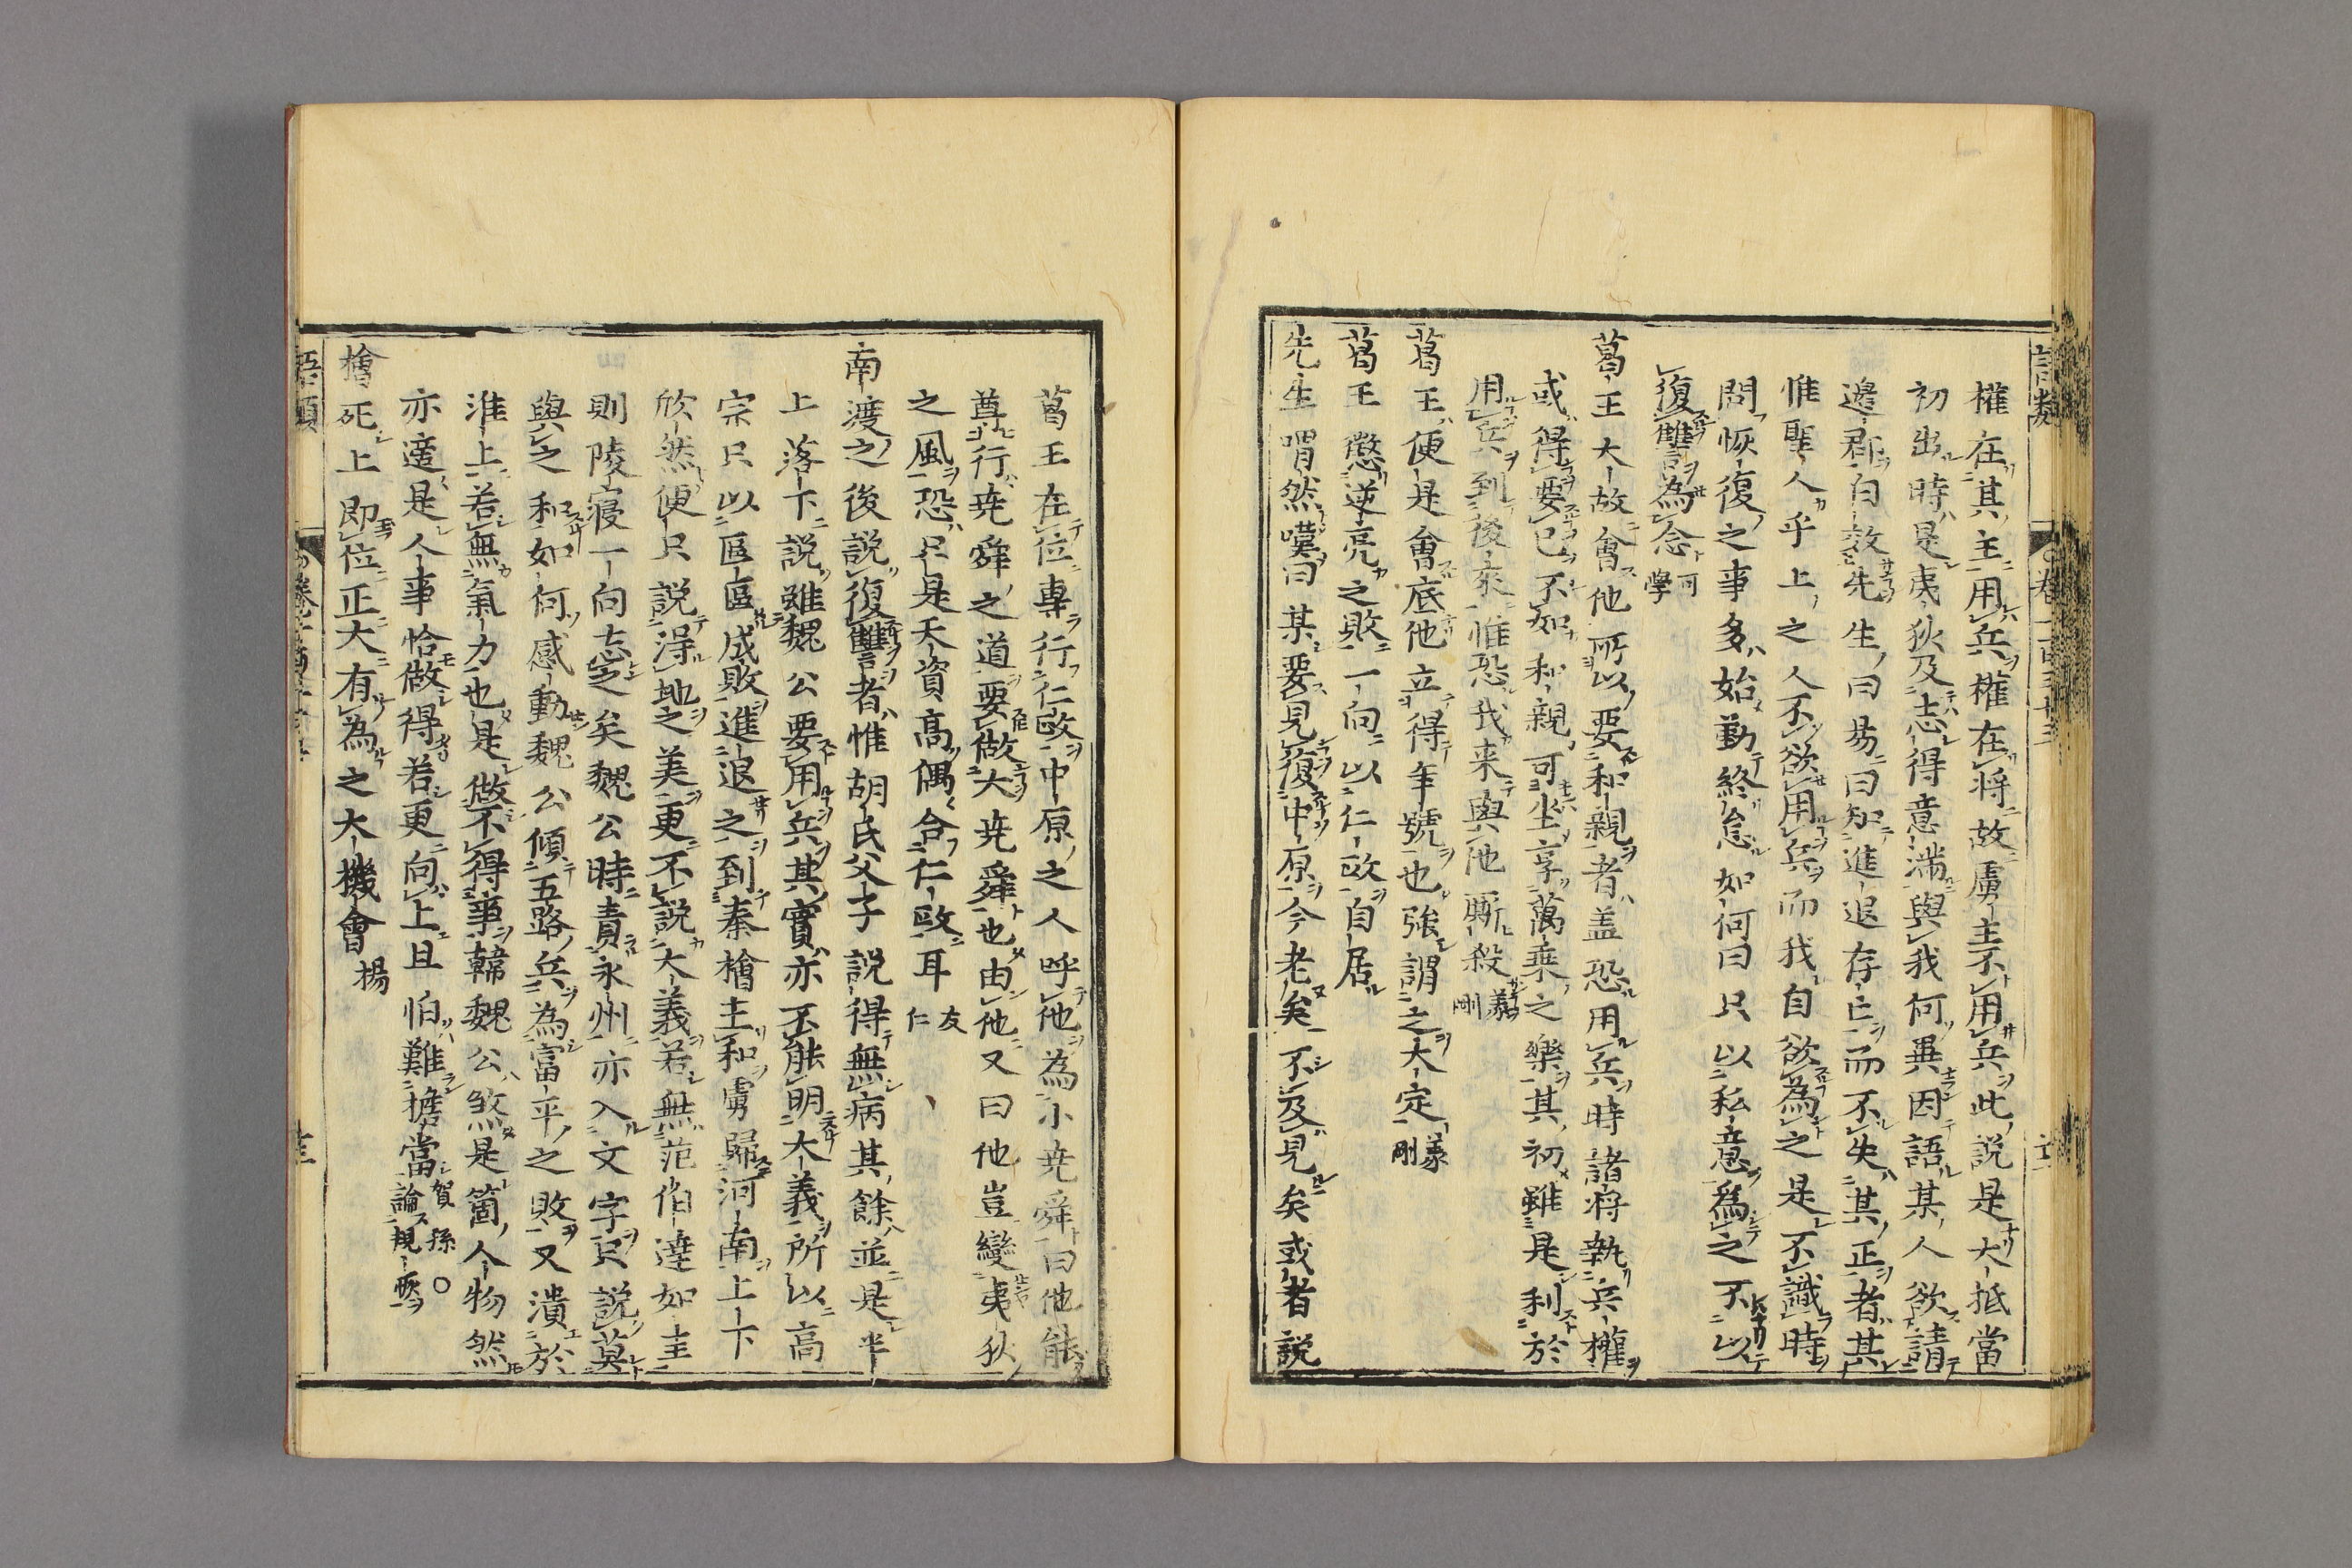 權在其主用兵權在将故虜主不用兵此說是大抵當
初出時是夷狄及志得意滿與我何異因語某人欲請
邊郡自效先生曰易曰知進退存亡而不失其正者其
惟聖人乎上之人不欲用兵而我自欲為之是不識時
問恢復之事多始勤終怠如何曰只以私意為之不以
復讐為念可學
葛王大故會他所以要和親者盖恐用兵時諸将執兵權
或得要己不如和親可坐享萬乗之樂其初雖是利於
用兵到後來惟恐我来與他厮殺義剛
葛王便是會底他立得年號也強謂之大定義剛
葛王懲逆亮之敗一向以仁政自居
先生喟然嘆曰某要見復中原今老矣不及見矣或者説
葛王在位專行仁政中原之人呼他為小尭舜曰他能
尊行尭舜之道要做大尭舜也由他又曰他豈變夷狄
之風恐只是天資高偶合仁政耳友仁
南渡之後説復讐者惟胡氏父子説得無病其餘並是半
上落下説雖魏公要用兵其實亦不能明大義所以高
宗只以區區成敗進退之到秦檜主和虜歸河南上下
欣然便只説得地之美更不説大義若無范伯達如圭
則陵寝一向忘之矣魏公時責永州亦入文字只説莫
與之和如何感動魏公傾五路兵為富平之敗又潰於
淮上若無氣力也是做不得事韓魏公煞是箇人物然
亦適是人事恰做得若更向上且怕難擔當賀孫○論規恢
檜死上即位正大有為之大機會揚
語類